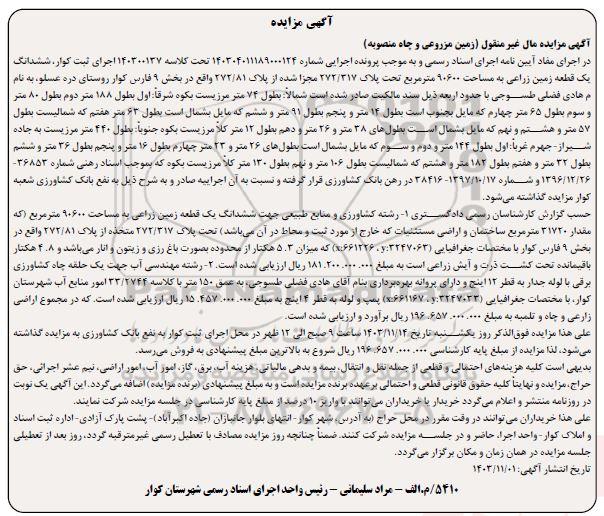 آگهی مزایده
آگهی مزایده مال غیر منقول (زمین مزروعی و چاه منصوبه)
در اجرای مفاد آیین نامه اجرای اسناد رسمی و به موجب پرونده اجرایی شماره ۱۴۰۳۰۴۰۱۱۱۸۹۰۰۰۱۲۴ تحت کلاسه ۱۴۰۳۰۰۱۳۷ اجرای ثبت کوار، ششدانگ
یک قطعه زمین زراعی به مساحت ۹۰۶۰۰ مترمربع تحت پلاک ۲۷۲/۳۱۷ مجزا شده از پلاک ۲۷۲/۸۱ واقع در بخش ۹ فارس کوار روستای دره عسلو، به نام
م هادی فضلی طســوجی با حدود اربعه ذیل سند مالکیت صادر شده است شمالاً: بطول ۷۴ متر مرزیست بکوه شرقاً: اول بطول ۱۸۸ متر دوم بطول ۸۰ متر
و سوم بطول ۶۵ متر چهارم که مایل بجنوب است بطول ۱۴ متر و پنجم بطول ۹۱ متر و ششم که مایل بشمال است بطول ۶۳ متر هفتم که شمالیست بطول
۵۷ متر و هشــتم و نهم که مایل بشمال اســت بطول‌های ۳۸ متر و ۲۶ متر و دهم بطول ۱۲ متر کلاً مرزیست بکوه جنوباً: بطول ۴۴۰ متر مرزیست به جاده
شــیراز- جهرم غرباً: اول بطول ۱۴۴ متر و دوم و ســوم که مایل بشمال است بطول‌های ۲۶ متر و ۲۳ متر چهارم بطول ۱۶ متر و پنجم بطول ۳۶ متر و ششم
بطول ۳۲ متر و هفتم بطول ۱۸۲ متر و هشتم که شمالیست بطول ۱۰۶ متر و نهم بطول ۱۳۰ متر کلاً مرزیست بکوه که بموجب اسناد رهنی شماره ۳۶۸۵۳-
۱۳۹۶/۱۲/۲۶ و شــماره ۱۳۹۷/۱۰/۱۷- ۳۸۴۱۶ در رهن بانک کشاورزی قرار گرفته و نسبت به آن اجراییه صادر و به شرح ذیل به نفع بانک کشاورزی شعبه
کوار مزایده گذاشته می‌شود.
حسب گزارش کارشناسان رسمی دادگســتری ۱- رشته کشاورزی و منابع طبیعی جهت ششدانگ یک قطعه زمین زراعی به مساحت ۹۰۶۰۰ مترمربع (که
مقدار ۳۱۷۲۰ مترمربع ساختمان و اراضی مستثنیات که خارج از مورد ثبت و محاط در آن می‌باشد) تحت پلاک ۲۷۲/۳۱۷ متخذه از پلاک ۲۷۲/۸۱ واقع در
بخش ۹ فارس کوار با مختصات جغرافیایی (x:۶۶۱۲۲۶ ,y:۳۲۴۷۰۶۳) که میزان ۵.۳ هکتار از محدوده بصورت باغ رزی و زیتون و انار می‌باشد و ۸.۴ هکتار
باقیمانده تحت کشــت ذرت و آیش زراعی است به مبلغ ۱۸۱.۲۰۰.۰۰۰.۰۰۰ ریال ارزیابی شده است. ۲- رشته مهندسی آب جهت یک حلقه چاه کشاورزی
برقی با لوله جدار به قطر ۱۲ اینچ و دارای پروانه بهره‌برداری بنام آقای هادی فضلی طسوجی، به عمق ۱۵۰ متر با کلاسه ۳۳/۲۷۴۴ امور منابع آب شهرستان
کوار، با مختصات جغرافیایی (x:۶۶۱۱۶۷ , y:۳۲۴۷۰۳۳) پمپ و لوله به قطر ۴ اینچ به مبلغ ۱۵.۴۵۷.۰۰۰.۰۰۰ ریال ارزیابی شده است. که در مجموع اراضی
زراعی و چاه و تلمبه به مبلغ ۱۹۶.۶۵۷.۰۰۰.۰۰۰ ریال برآورد و ارزیابی شده است.
علی هذا مزایده فوق‌الذکر روز یکشــنبه تاریخ ۱۴۰۳/۱۱/۱۴ ساعت ۹ صبح الی ۱۲ ظهر در محل اجرای ثبت کوار به نفع بانک کشاورزی به مزایده گذاشته
می‌شود، لذا مزایده از مبلغ پایه کارشناسی ۱۹۶.۶۵۷.۰۰۰.۰۰۰ ریال شروع به بالاترین مبلغ پیشنهادی به فروش می‌رسد.
بدیهی است کلیه هزینه‌های احتمالی و قطعی از جمله نقل و انتقال، بیمه و بدهی مالیاتی، هزینه آب، برق، گاز، امور آب، امور اراضی، نیم عشر اجرائی، حق
حراج، مزایده و نهایتا کلیه حقوق قانونی قطعی و احتمالی بر عهده برنده مزایده است و به مبلغ پیشنهادی (برنده مزایده) اضافه می‌گردد. این آگهی یک نوبت
در روزنامه منتشر و اعلام می‌گردد خریدار یا خریداران می‌توانند با واریز ۱۰ درصد از مبلغ پایه کارشناسی در جلسه مزایده شرکت نمایند.
علی هذا خریداران می‌توانند در وقت مقرر در محل حراج (به آدرس، شهر کوار- انتهای بلوار جانبازان (جاده اکبرآباد)- پشت پارک آزادی- اداره ثبت اسناد
و املاک کوار- واحد اجرا، حاضر و در جلســه مزایده شرکت کنند. ضمناً چنانچه روز مزایده مصادف با تعطیل رسمی غیرمترقبه گردد، روز بعد از تعطیلی
جلسه مزایده در همان زمان و مکان برگزار می‌گردد.
تاریخ انتشار آگهی: ۱۴۰۳/۱۱/۰۱
۵۴۱۰/م.الف – مراد سلیمانی – رئیس واحد اجرای اسناد رسمی شهرستان کوار